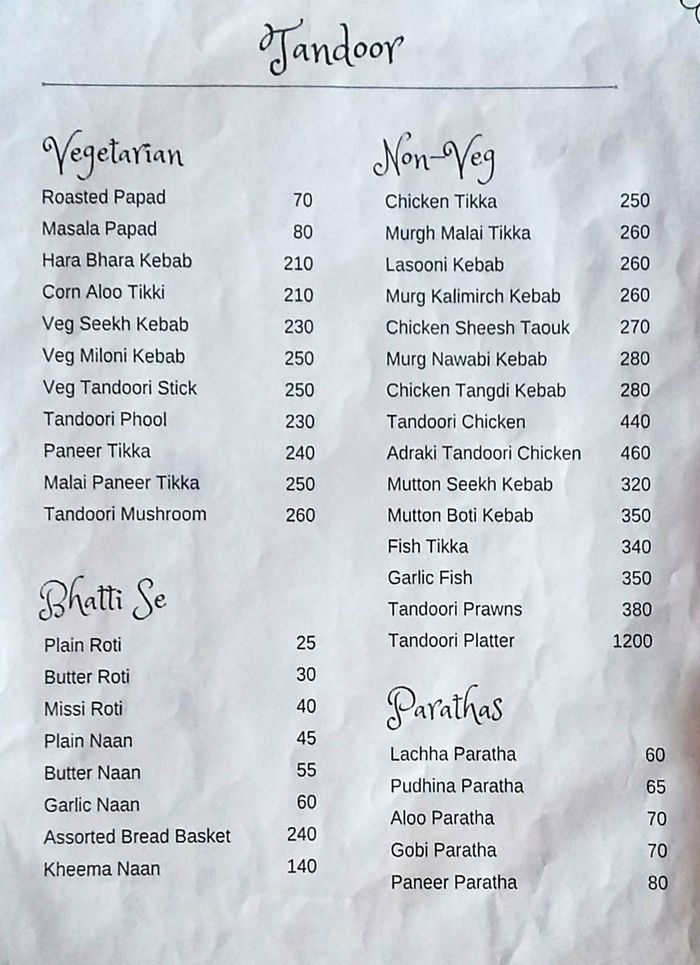 Tandoor
Vegetarian
Roasted Papad 70
Masala Papad 80
Hara Bhara Kebab 210
Corn Aloo Tikki 210
Veg Seekh Kebab 230
Veg Miloni Kebab 250
Veg Tandoori Stick 250
Tandoori Phool 230
Paneer Tikka 240
Malai Paneer Tikka 250
Tandoori Mushroom 260
Bhatti Se
Plain Roti 25
Butter Roti 30
Missi Roti 40
Plain Naan 45
Butter Naan 55
Garlic Naan 60
Assorted Bread Basket 240
Kheema Naan 140
Non-Veg
Chicken Tikka 250
Murgh Malai Tikka 260
Lasooni Kebab 260
Murg Kalimirch Kebab 260
Chicken Sheesh Taouk 270
Murg Nawabi Kebab 280
Chicken Tangdi Kebab 280
Tandoori Chicken 440
Adraki Tandoori Chicken 460
Mutton Seekh Kebab 320
Mutton Boti Kebab 350
Fish Tikka 340
Garlic Fish 350
Tandoori Prawns 380
Tandoori Platter 1200
Parathas
Lachha Paratha 60
Pudhina Paratha 65
Aloo Paratha 70
Gobi Paratha 70
Paneer Paratha 80